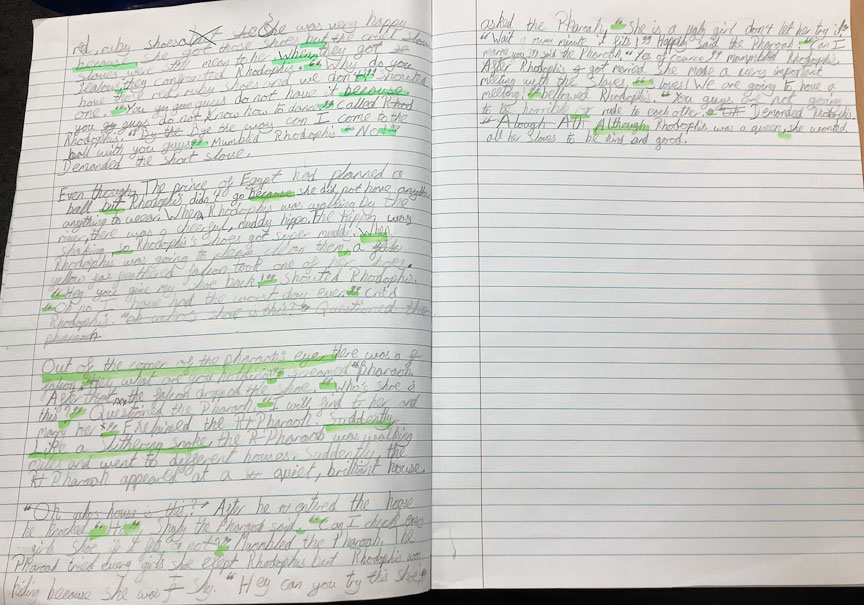 red, ruby shoes. She was very happy
because she got those shoes but the cruel slaves
slaves was mean to her. When they got
Jealous, they confronted Rhodophis. "Why do you
have red ruby shoes and we don't!" Shouted
one. "You guys do not have it because
you guys do not know how to dance" called Rhod
Rhodophis. "By the Bye the way can I come to the
ball with you guys" Mumbled Rhodophis "No!"
Demanded the short slave.
Even though The prince of Egypt had planned a
ball but Rhodophis didn't go because she did not have anything
anything to wear. When Rhodophis was walking by the
river, there was a cheerful, muddy hippo. The hippo was
so Rhodophis's shoes got super muddy. When
Rhodophis was going to clean them, a
yellow falcon took one of her shoes.
"Hey you give my shoe back!" Shouted Rhodophis.
"Oh no I have had the worst day ever" Cried
Rhodophis. "Oh who's shoe is this?" Questioned the
pharaoh
Out of the corner of the pharaoh's eye, there was a
falcon. "Hey what are you" screamed pharaoh
After that the falcon droped the shoe. "Who's shoe is
this?" Questioned the Pharaoh. "I will find to her and
marry her" Exclaimed the Pharaoh. Suddenly
Like a slithering snake, the Pharaoh was walking
miles and went to different houses. Suddenly, the
Pharaoh appeared at a quiet, brilliant house.
"Oh who's house is this?" After he entired the house
he knocked "Hi" Shyly the Pharaoh said. "Can I check every
girls shoe if it fits or not" Mumbled the Pharaoh. The
Pharaoh tried every girls shoe exept Rhodophis but Rhodophis was
hiding because she was shy. "Hey can you try this shoe"
asked the Pharoah, "She is a ugly girl don't let her try it"
"Wait a minute it fits!" Happily said the Pharoah "Can I
marry you" said the Pharoah "Yes of cource" mumbled Rhodophis
After Rhodophis got married She made a very important
meeting with the Slaves. "Slaves! We are going to have a
meeting." bellowed Rhodophis. "You guys are not going
to be horrible or rude to each other." Demanded Rhodophis
Alough Alth Although Rhodophis was a queen, she wanted
all her slaves to be kind and good.